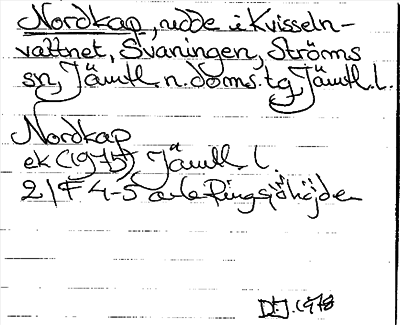 Nordkap, udde i Kvisseln-
vattnet, Svaningen, Ströms
sn, Jämtl. n. doms. tg, Jämtl. l.
Nordkap
ek (1975) Jämtl l.
21F 4-5 a-b Ringsjöhöjden
1978